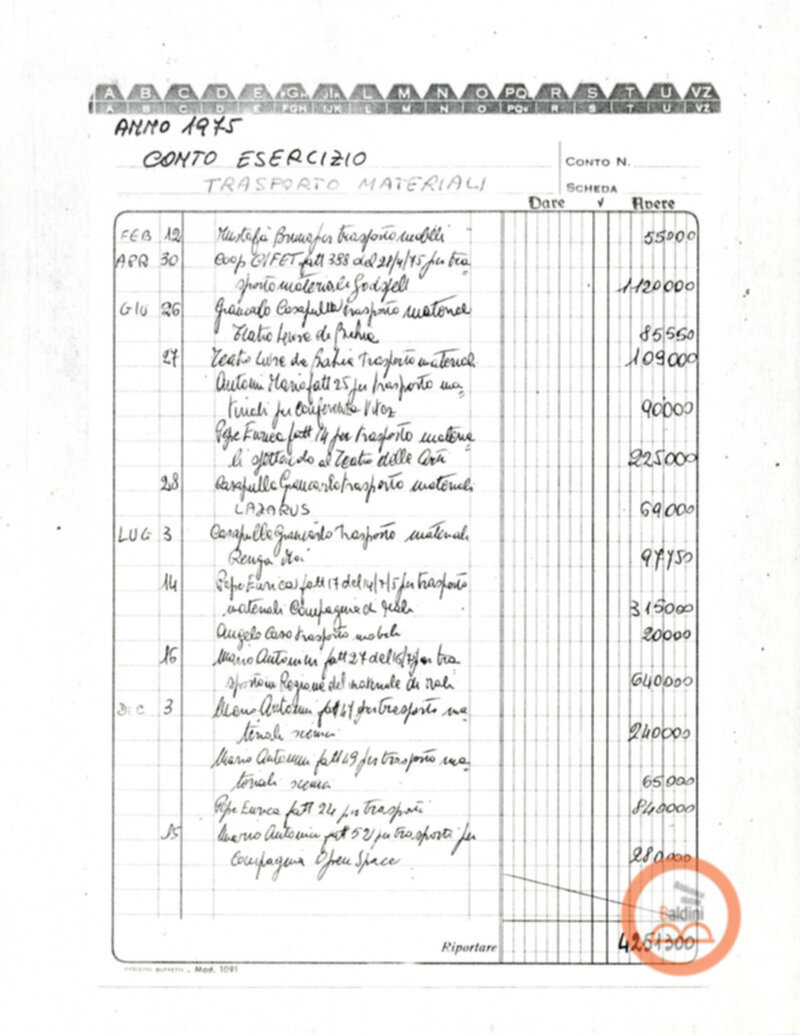 A B C D E FGH IJK L M N O PQ R S T U VZ
A B C D E FGH IJK L M N O PQ R S T U VZ
ANNO 1975
CONTO ESERCIZIO
CONTO N.
TRASPORTO MATERIALI
SCHEDA
Dare √ Avere
FEB 12 Mustafà Bruno per trasporto mobili 55000
APR 30 Coop CIFET fatt 388 del 28/4/75 per tra
sporto materiale Godspell 1120000
GIU 26 Giancarlo Casapulla trasporto material
Teatro Livre de Bahia 85550
27 Teatro Livre da Bahia Trasporto materiali 109000
Antonini Mario fatt 25 per trasporto ma
teriali per conferenza 90000
Pepe Enrica fatt 14 per trasporto materia
li spettacolo al Teatro delle Arti 225000
28 Casapulla Giancarlo trasporto materiali
LAZARUS 69000
LUG 3 Casapulla Giancarlo Trasporto materiali
Renga Moi 97750
14 Pepe Enrica fatt 17 del 14/7/5 per trasporto
materiali Compagnia di 315000
Angelo Caso trasporto mobili 20000
16 Mario Antonini fatt 27 del 16/7 per tra
sporto in Regione del materiale di 640000
DIC 3 Mario Antonini fatt 47 per trasporto ma
teriali scenici 240000
Mario Antonini fatt 49 per trasporto ma
teriali scenici 65000
Pepe Enrica fatt 24 per trasporti 840000
15 Mario Antonini fatt 52 per trasporti per
Compagnia Open Space 280000
Biblioteca
Baldini
Riportare 4251300
BUFFETTI - Mod. 1091